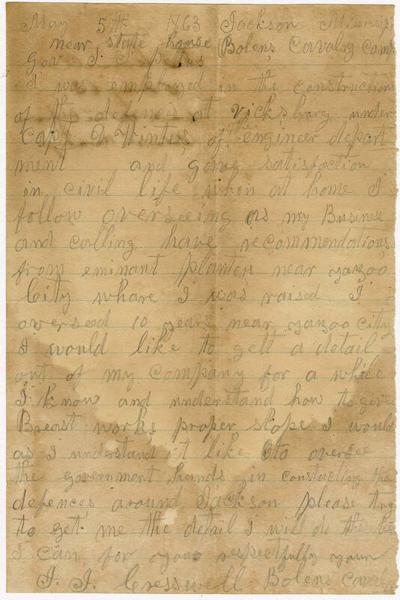 May 5th 1863 Jackson Mississi
near state house Bolens Cavalry Camp
Gov J. J. Pettus
I was employed in the construction
of the defences at Vicksburg under
Capt D Winter of engineer depart
ment and gave satisfaction
in civil life when at home I
follow overseeing as my Busines
and calling have recommendations
from eminant planters near yazoo
City whare I was raised I
overseed 10 years near yazoo City
I would like to gett a detail
out of my company for a while
I know and understand how to give
Breast works proper slope I would
as I understand it like to oversee
the government hands in constucting the
defences around Jackson please try
to get me the detail I will do the best
I can for you respectfully yours
J. J. Cresswell Bolens Cavalry